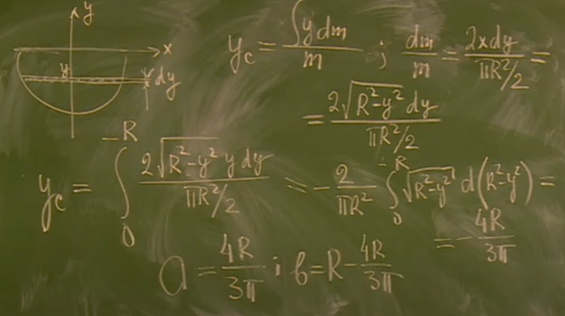 y
x
y
dy
y_c = ∫ y dm / m ; dm/m = 2x dy / (πR²/2) =
= 2√(R²-y²) dy / (πR²/2)
y_c = ∫₀^(-R) 2√(R²-y²) y dy / (πR²/2) = - 2/(πR²) ∫₀^(-R) √(R²-y²) d(R²-y²) =
= - 4R/3π
a = 4R/3π ; b = R - 4R/3π